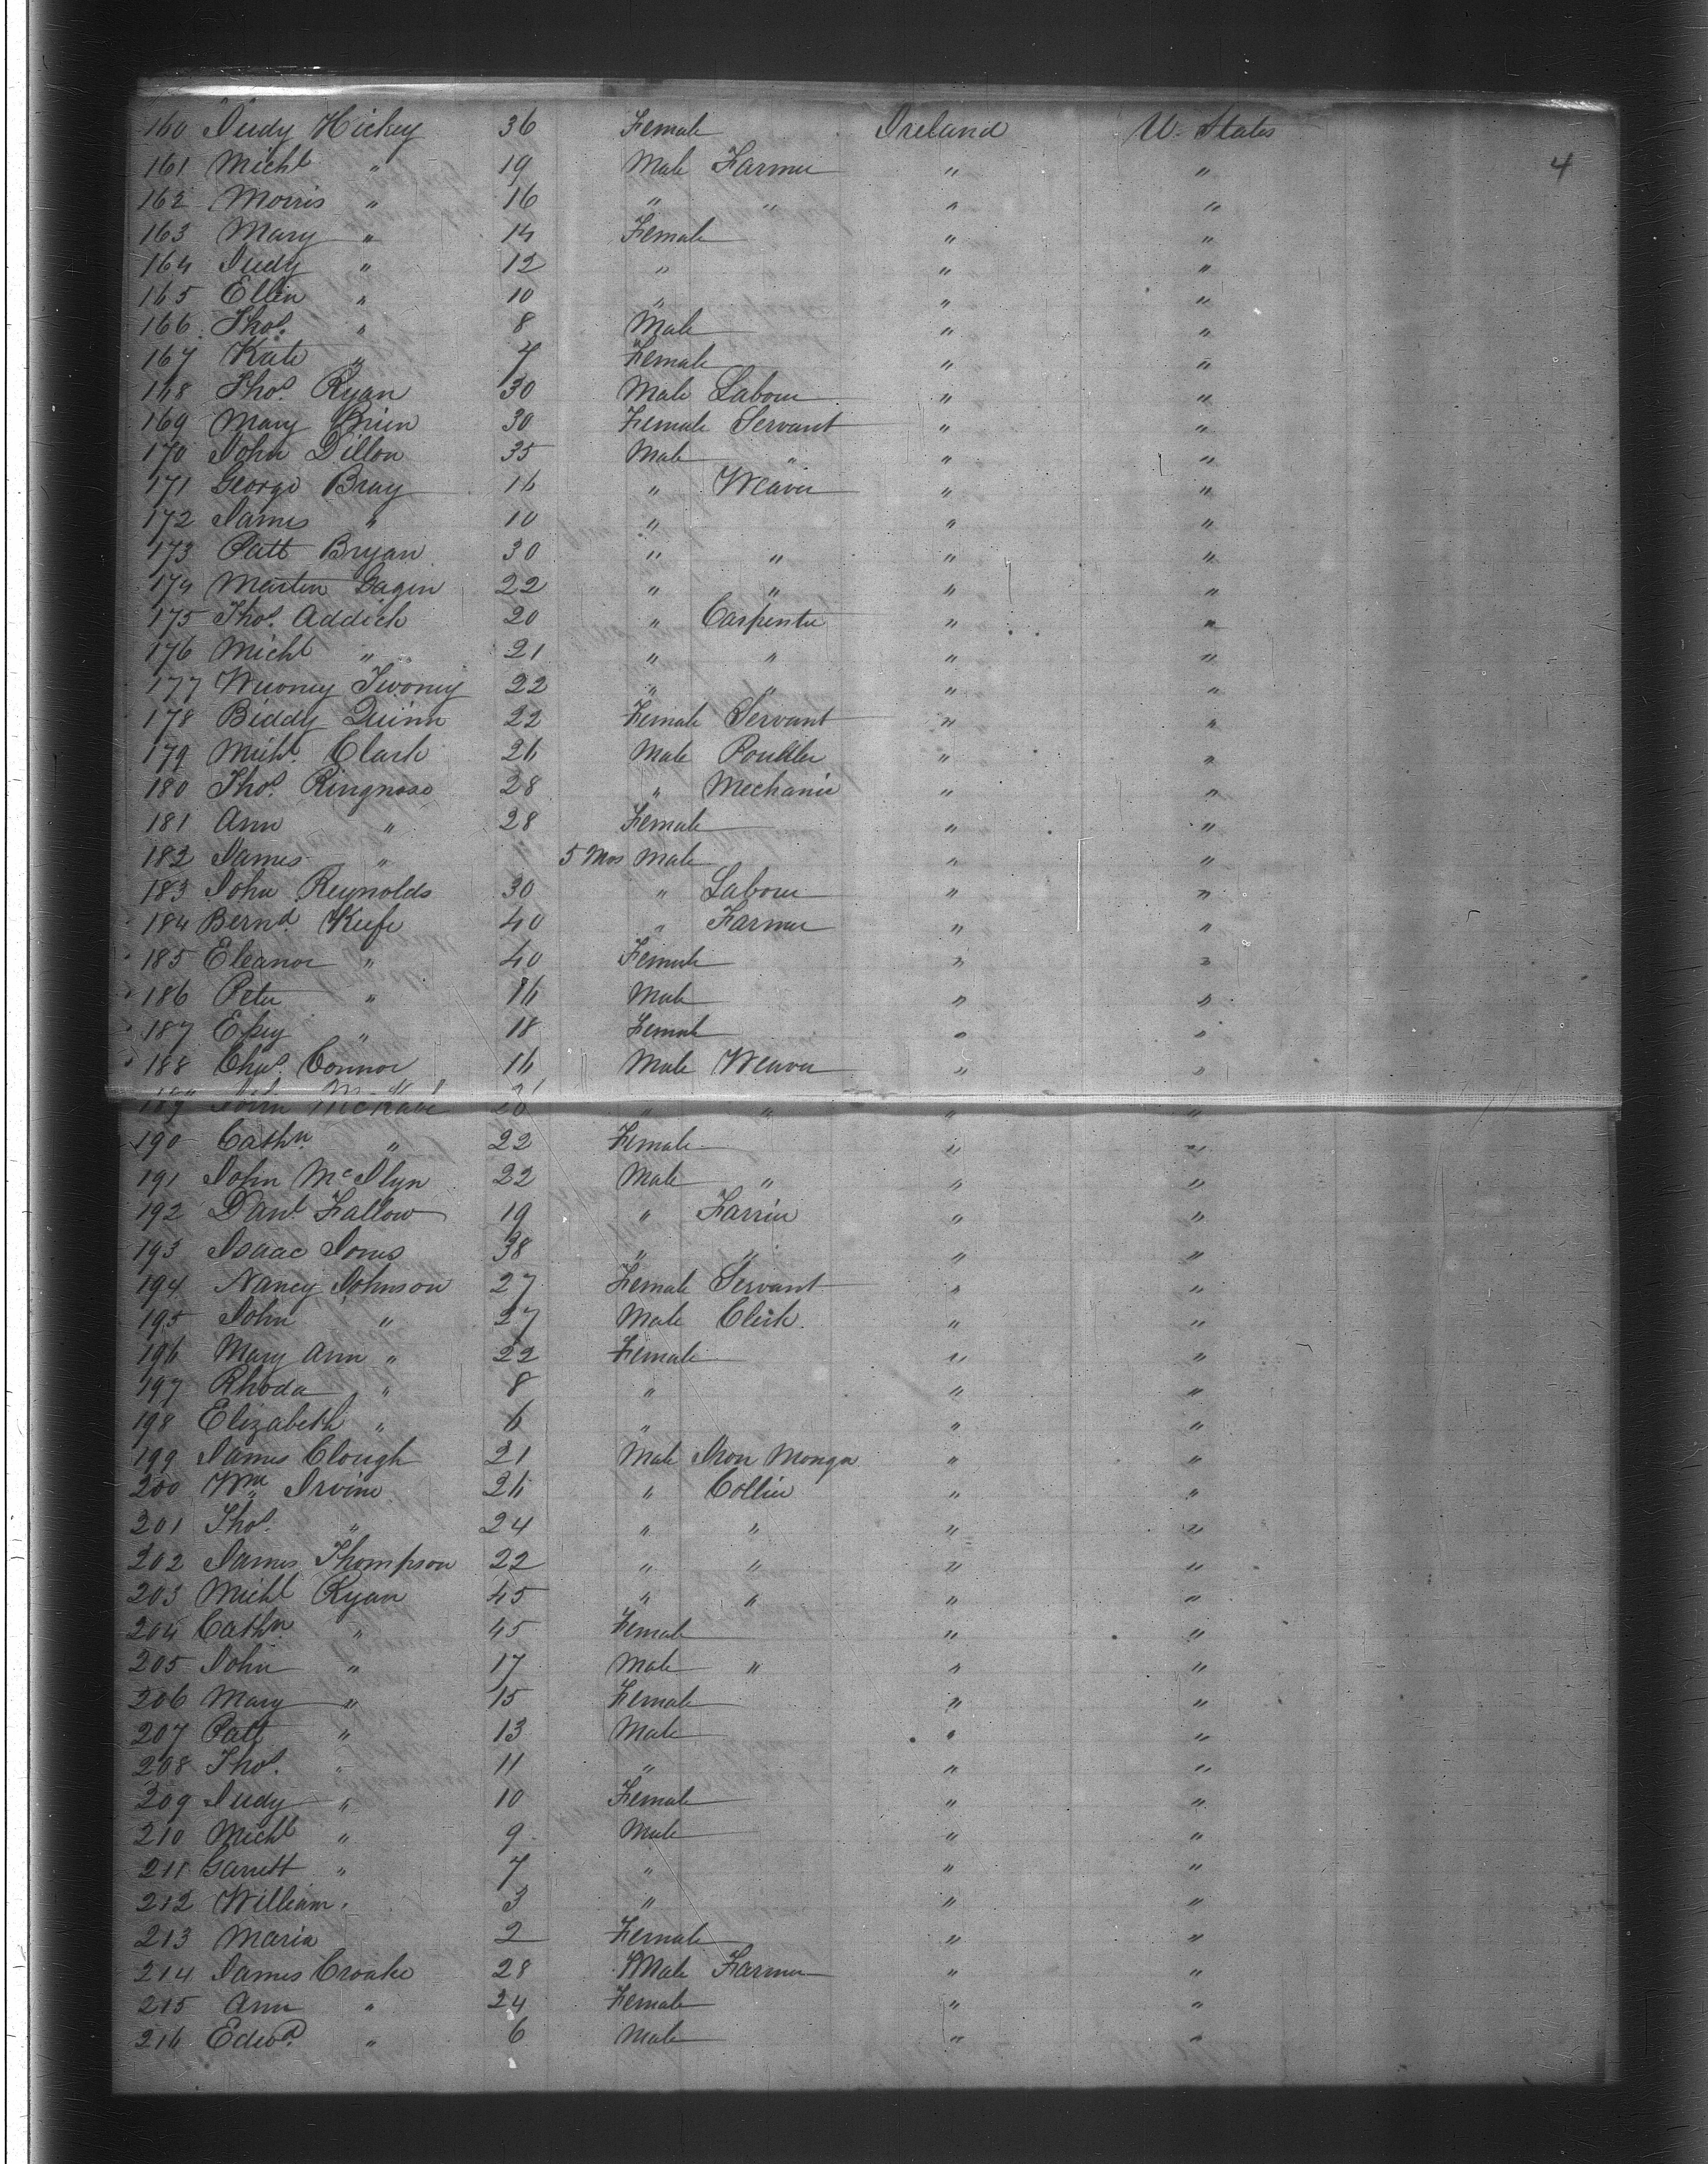 160 Judy Hickey 36 Female Ireland U. States
4
161 Michl " 19 Male Farmer " "
162 Morris " 16 " " " "
163 Mary " 14 Female " "
164 Judy " 12 " " "
165 Ellen " 10 " " "
166 Thos. " 8 Male " "
167 Kate " 7 Female " "
168 Thos. Ryan 30 Male Labour " "
169 Mary Brien 30 Female Servant " "
170 John Dillon 35 Male " " "
171 George Bray 16 " Weaver " "
172 James " 10 " " "
173 Patt Bryan 30 " " " "
174 Martin Gagen 22 " " " "
175 Thos. Addick 20 " Carpenter " "
176 Michl " 21 " " " "
177 Twomey 22 " " " "
178 Biddy Quinn 22 Female Servant " "
179 Michl. Clark 26 Male " "
180 Thos. Ringrose 28 " Mechanic " "
181 Ann " 28 Female " "
182 James " 5 Mos Male " "
183 John Reynolds 30 " Labour " "
184 Bernd. Keefe 40 " Farmer " "
185 Eleanor " 40 Female " "
186 Peter " 16 Male " "
187 " 18 Female " "
188 Chas. Connor 16 Male Weaver " "
189 John McKabe " " " "
190 Cathn. " 22 Female " "
191 John 22 Male " " "
192 Danl. Fallow 19 " " "
193 Isaac Jones 38 " " " "
194 Nancy Johnson 27 Female Servant " "
195 John " 27 Male Clerk. " "
196 Mary Ann " 22 Female " "
197 Rhoda " 8 " " "
198 Elizabeth " 6 " " "
199 James Clough 21 Male Iron Monger " "
200 Wm Irvine 26 " Collier " "
201 Thos. " 24 " " " "
202 James Thompson 22 " " " "
203 Michl Ryan 45 " " " "
204 Cathn. " 45 Female " "
205 John " 17 Male " " "
206 Mary " 15 Female " "
207 Patt " 13 Male " "
208 Thos. " 11 " " "
209 Judy " 10 Female " "
210 Michl " 9 Male " "
211 Garrett " 7 " " "
212 William " 3 " " "
213 Maria 2 Female " "
214 James Croake 28 Male Farmer " "
215 Ann " 24 Female " "
216 Edwd. " 6 Male " "